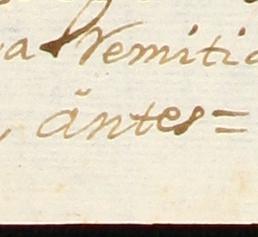 a Nemitia
, ãntes=